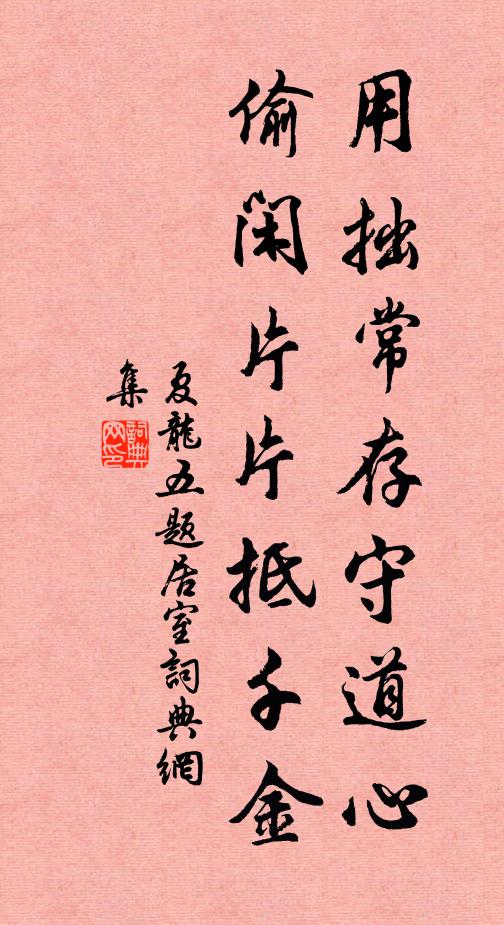 用拙常存守道心
偷闲片片抵千金
夏龍五题居室詞典網
集
詞典
网印